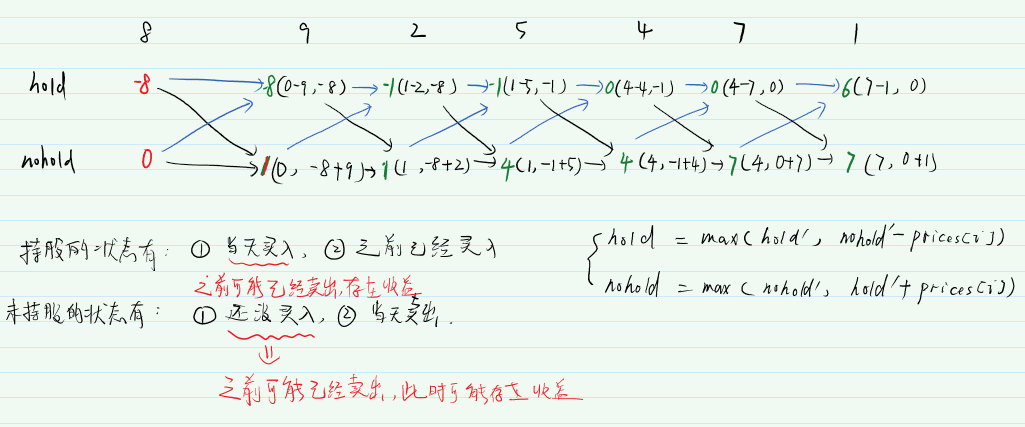 8 9 2 5 4 7 1
hold -8 -8(0-9,-8) -1(1-2,-8) -1(1-5,-1) 0(4-4,-1) 0(4-7,0) 6(7-1,0)
nohold 0 1(0, -8+9) 1(1, -8+2) 4(1,-1+5) 4(4,-1+4) 7(4,0+7) 7(7,0+1)
持股的状态有: ① 当天买入, ② 之前已经买入
之前可能已经卖出,存在收益
未持股的状态有: ① 还没买入, ② 当天卖出.
之前可能已经卖出,此时可能存在收益
hold = max(hold', nohold'-prices[i])
nohold = max(nohold', hold'+prices[i])